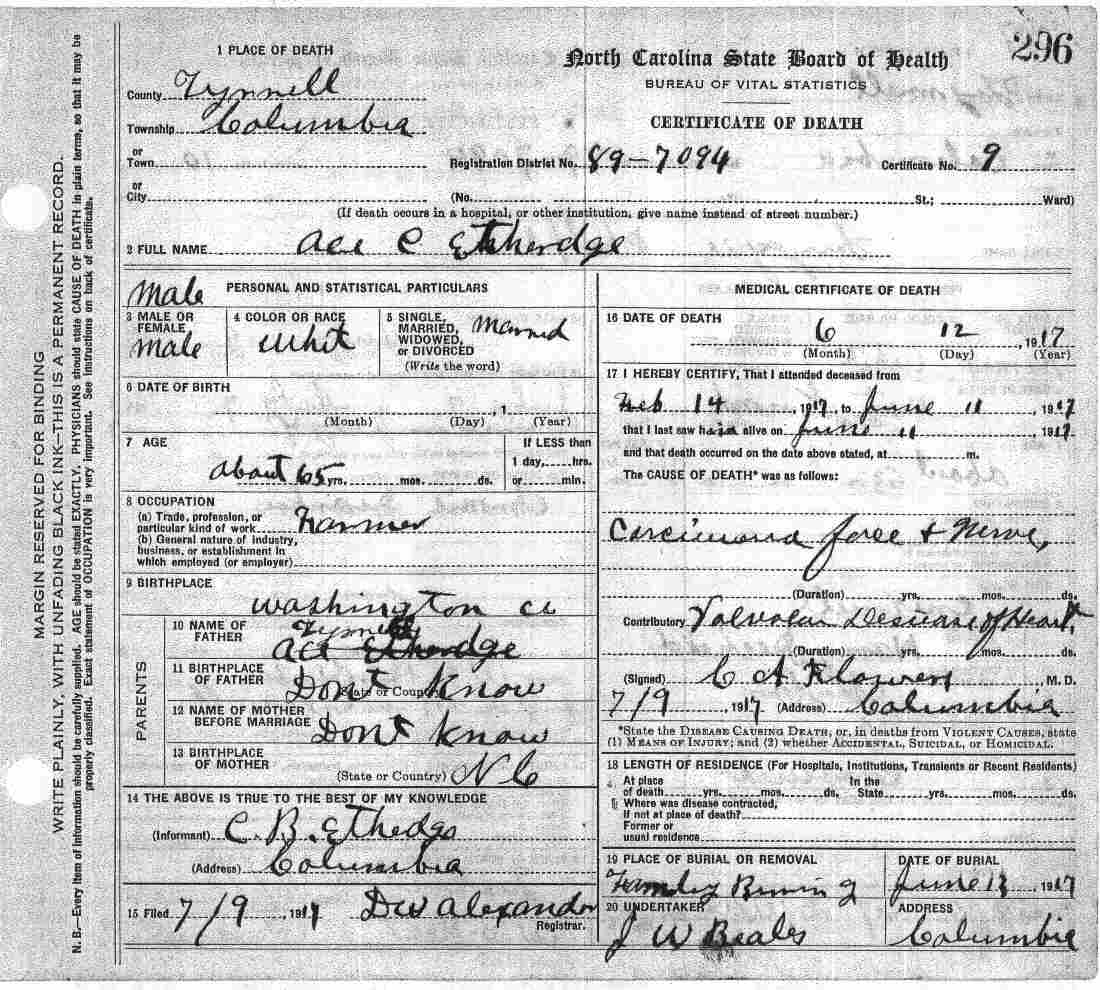 296
North Carolina State Board of Health
BUREAU OF VITAL STATISTICS
CERTIFICATE OF DEATH
MARGIN RESERVED FOR BINDING
WRITE PLAINLY, WITH UNFADING BLACK INK—THIS IS A PERMANENT RECORD.
N. B.—Every item of information should be carefully supplied. AGE should be stated EXACTLY. PHYSICIANS should state CAUSE OF DEATH in plain terms, so that it may be
properly classified. Exact statement of OCCUPATION is very important. See instructions on back of certificate.
1 PLACE OF DEATH
County Tyrrell
Township Columbia
or
Town
Registration District No. 89-7094
Certificate No. 9
or
City
(No. St.; Ward)
(If death occurs in a hospital, or other institution, give name instead of street number.)
2 FULL NAME Ace C Etherdge
Male PERSONAL AND STATISTICAL PARTICULARS
3 MALE OR FEMALE Male
4 COLOR OR RACE Whit
5 SINGLE, MARRIED, WIDOWED, or DIVORCED Married
(Write the word)
6 DATE OF BIRTH
, 1
(Month) (Day) (Year)
7 AGE
about 65 yrs. mos. ds.
If LESS than
1 day, hrs.
or min.
8 OCCUPATION
(a) Trade, profession, or
particular kind of work Farmer
(b) General nature of industry,
business, or establishment in
which employed (or employer)
9 BIRTHPLACE
Washington Co
PARENTS
10 NAME OF FATHER
Ace Etherdge
11 BIRTHPLACE OF FATHER
(State or Country) Dont Know
12 NAME OF MOTHER BEFORE MARRIAGE Dont Know
13 BIRTHPLACE OF MOTHER
(State or Country) N C
14 THE ABOVE IS TRUE TO THE BEST OF MY KNOWLEDGE
(Informant) C. B. Ethedge
(Address) Columbia
15 Filed 7/9, 1917 DW Alexander
Registrar.
MEDICAL CERTIFICATE OF DEATH
16 DATE OF DEATH
6 12, 1917
(Month) (Day) (Year)
17 I HEREBY CERTIFY, That I attended deceased from
Feb 14, 1917, to June 11, 1917
that I last saw him alive on June 11, 1917
and that death occurred on the date above stated, at m.
The CAUSE OF DEATH* was as follows:
Carcinoma face + Nerve,
(Duration) yrs. mos. ds.
Contributory Valvolar Desease of Heart
(Duration) yrs. mos. ds.
(Signed) C A Flowers M. D.
7/9, 1917 (Address) Columbia
*State the DISEASE CAUSING DEATH, or, in deaths from VIOLENT CAUSES, state
(1) MEANS OF INJURY; and (2) whether ACCIDENTAL, SUICIDAL, or HOMICIDAL.
18 LENGTH OF RESIDENCE (For Hospitals, Institutions, Transients or Recent Residents)
At place of death yrs. mos. ds. In the State yrs. mos. ds.
Where was disease contracted,
If not at place of death?
Former or
usual residence
19 PLACE OF BURIAL OR REMOVAL
DATE OF BURIAL
June 13 1917
20 UNDERTAKER
J W Beales
ADDRESS
Columbia